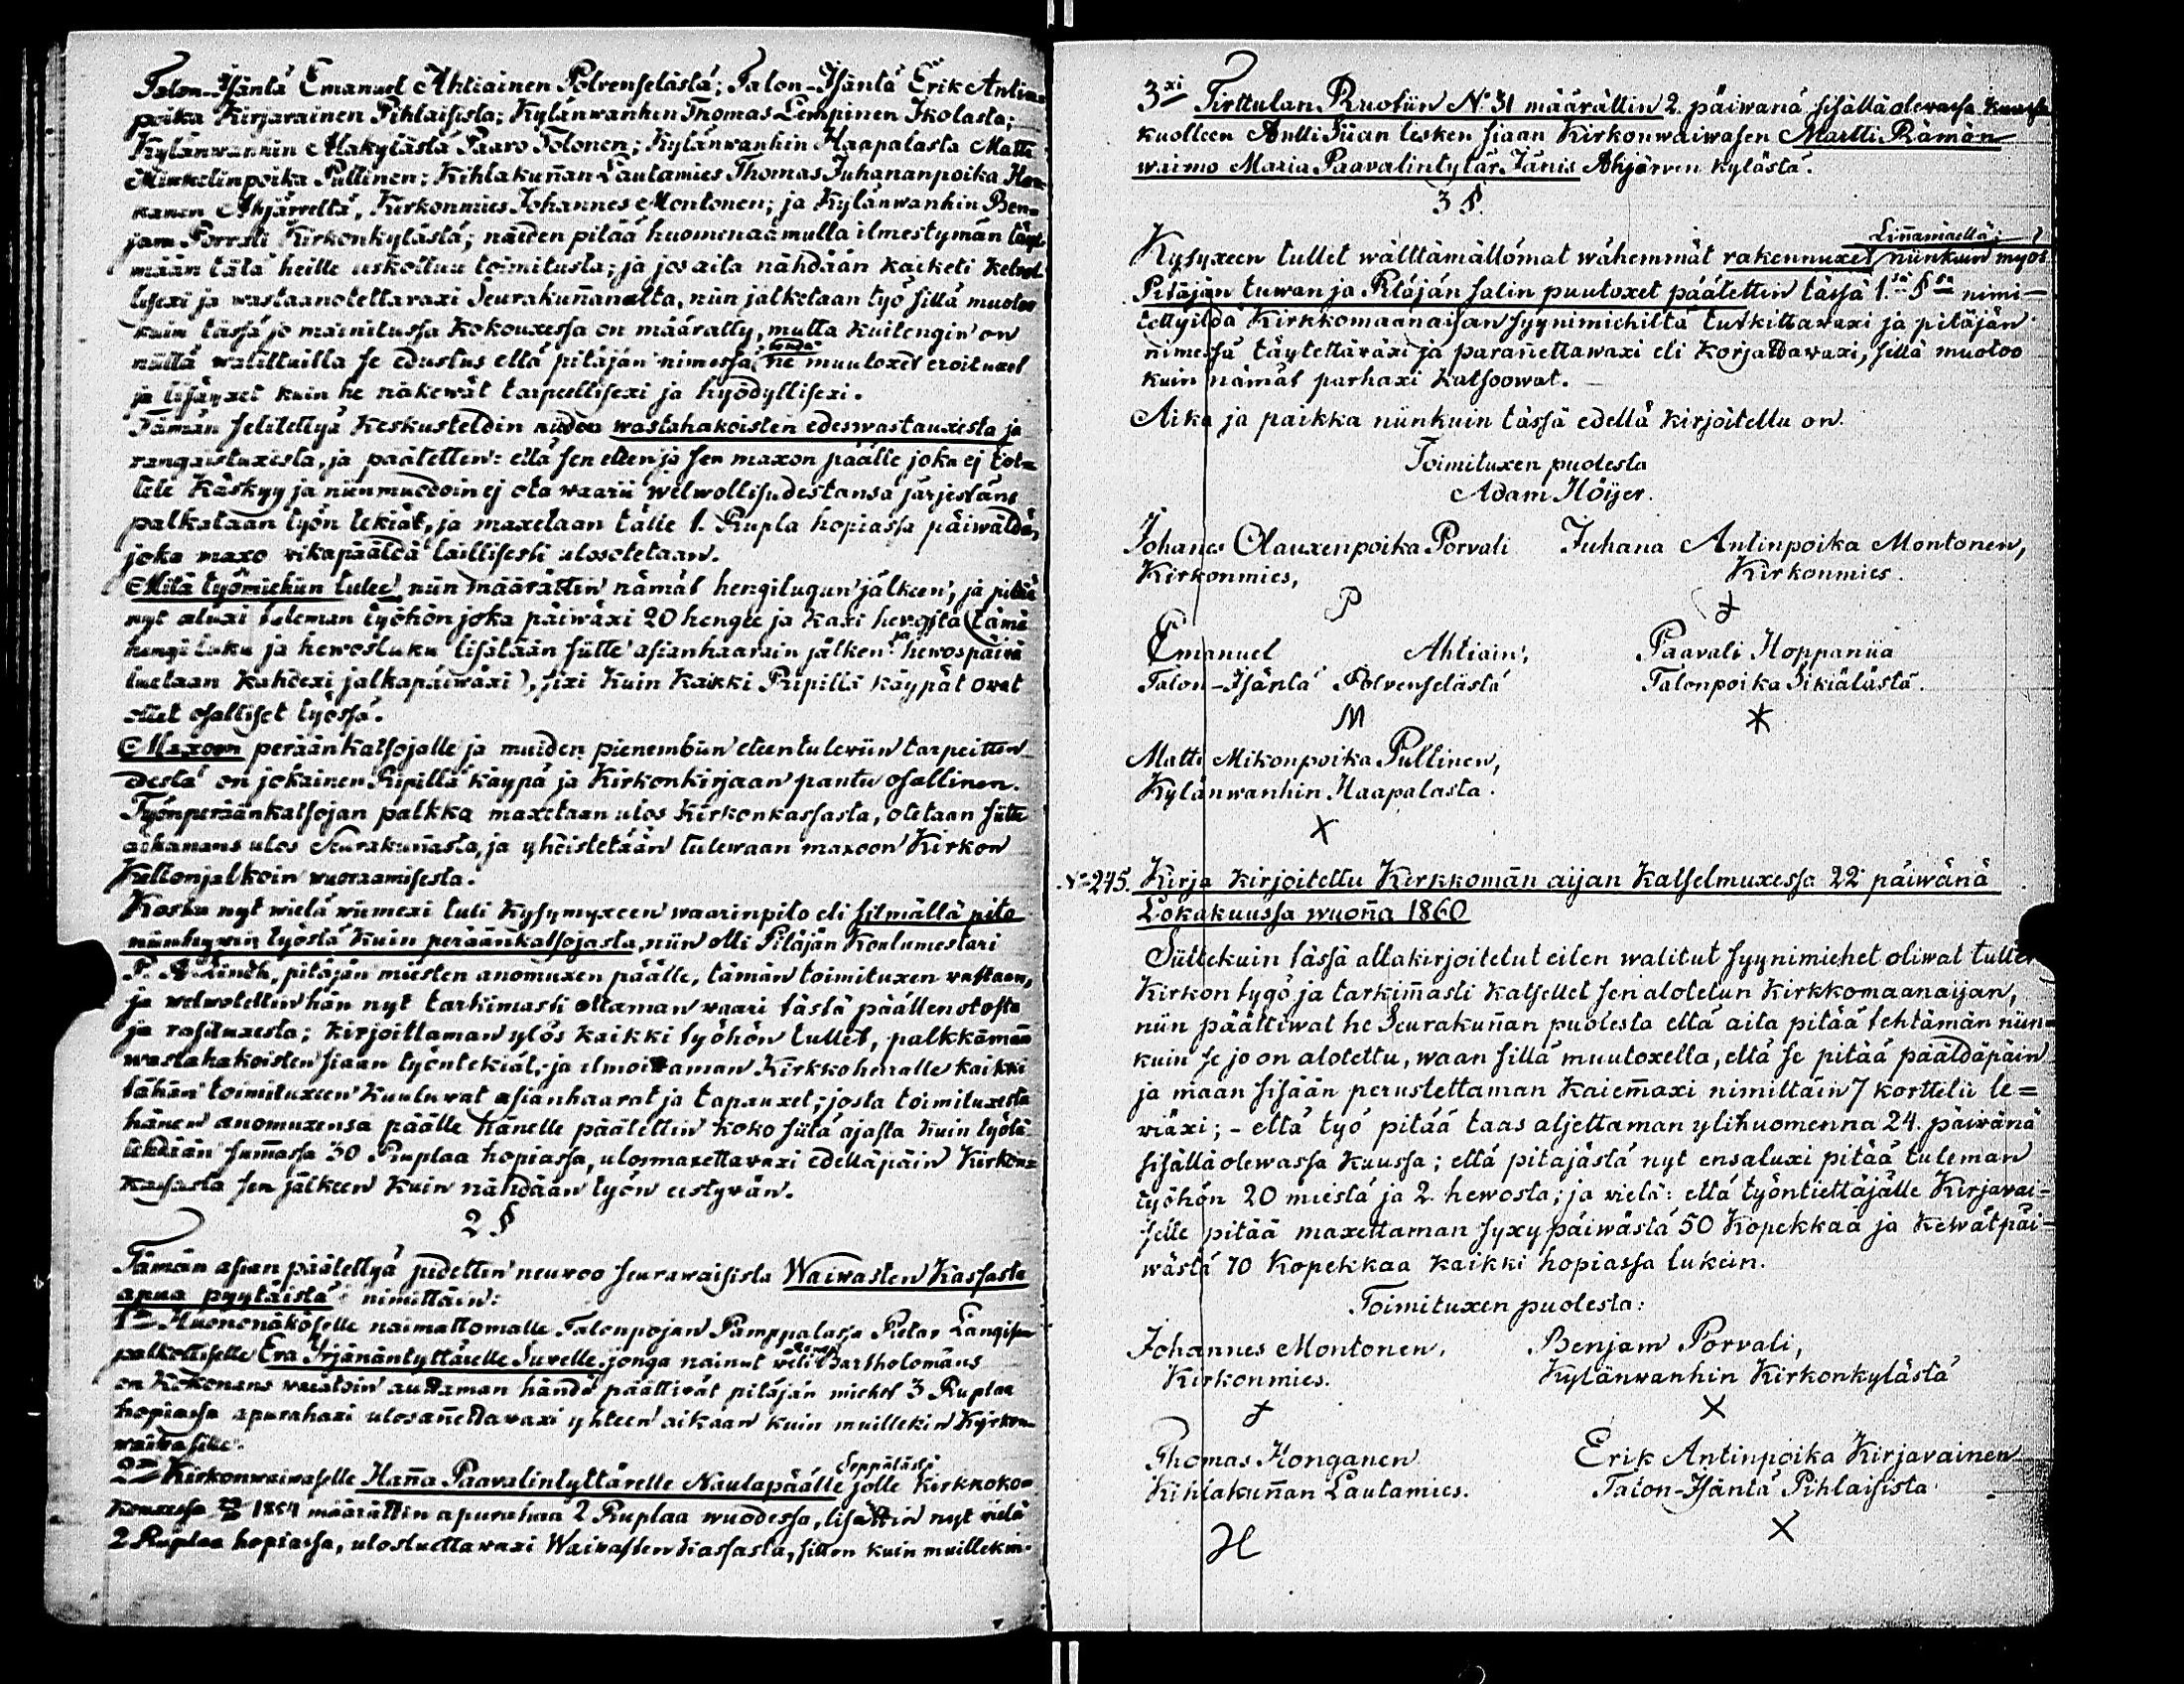 Talon-Isäntä Emanuel Ahtiainen Polvenselästä; Talon-Isäntä Erik Antin=
poika Kirjavainen Pihlaisista; Kylänwanhin Thomas Lempinen Ikolasta;
Kylänwanhin Alakylästä Paavo Tolonen; Kylänwanhin Haapalasta Matti
Mikkelinpoika Pullinen; Kihlakuñan Lautamies Thomas Juhananpoika Hon=
kanen Ahjärveltä, Kirkonmies Johannes Montonen; ja Kylänwanhin Ben=
jam Porvali Kirkonkylästä; näiden pitää huomenaamulla ilmestymän täyt
mään tätä heille uskottua toimitusta; ja jos aita nähdään kaiketi kelvol
lisexi ja wastaanotettavaxi Seurakuñanalta, niin jatketaan työ sillä muotoo
kuin tässä jo mainitussa Kokouxessa on määrätty, mutta kuitengin on
näillä walituilla se edustus että pitäjän nimessä tehdä ne muutoxet eroituxet
ja lisäyxet kuin he näkewät tarpeellisexi ja hyödyllisexi.
Tämän selitettyä keskusteldin niiden wastahakoisten edeswastauxista ja
rangaistuxista, ja päätettin: että sen eteen ja sen maxon päälle joka ej tot=
tele Käskyy ja niinmuodoin ej ota waarii welwollisudestansa järjestäns
palkataan työn tekiät, ja maxetaan tälle 1. Rupla hopiassa päiwäldä,
joka maxo vikapääldä laillisesti ulosotetaan.
Mitä työmiehiin tulee, niin määrättin nämät hengilugun jälkeen, ja pitää
nyt aluxi tuleman työhön joka päiwäxi 20 hengee ja Kaxi hevosta (tämä
hengiluku ja hewosluku lisätään siitte asianhaarain jälken ja hewospäivä
luetaan Kahdexi jalkapäiwäxi), sixi kuin Kaikki Ripillä käypät ovat
ollet osalliset työssä.
Maxoon peräänkatsojalle ja muiden pienembiin eteentuleviin tarpeitten
destä on jokainen Ripillä käypä ja Kirkonkirjaan pantu osallinen.
Työnperäänkatsojan palkka maxetaan ulos Kirkonkassasta, otetaan siitte
aikanans ulos Seurakuñasta, ja yhdistetään tulewaan maxoon Kirkon
Kellonjalkoin wuoraamisesta.
Koska nyt wielä wiimexi tuli Kysymyxeen waarinpito eli silmällä pito
niinhywin työstä kuin peräänkatsojasta, niin otti Pitäjän Koulumestari
P. A. Lindh, pitäjän miesten anomuxen päälle, tämän toimituxen vastaan,
ja welwotettin hän nyt tarkimasti ottaman waari tästä päällenotosta
ja rasituxesta; kirjoittaman ylös kaikki työhön tullet, palkkämän
wastahakoisten siaan työntekiät, ja ilmoittaman Kirkkoherralle kaikki
tähän toimituxeen Kuuluvat asianhaarat ja tapauxet; josta toimituxesta
hänen anomuxensa päälle hänelle päätettin koko siitä ajasta kuin työtä
tehdään summassa 30 Ruplaa hopiassa, ulosmaxettavaxi edelläpäin Kirkon=
kassasta sen jälkeen kuin nähdään työn eistyvän.
2 §
Tämän asian päätettyä pidettin neuvoo seurawaisista Waiwasten Kassasta
apua pyytäistä nimittäin:
1xi Huononäköselle naimattomalle Talonpojan Pamppalassa Pietar Langisen
palkolliselle Eva Yrjänäntyttärelle Suvelle, jonga nainut veli Bartholomäus
on Kokonans waratoin auttaman händä päättivät pitäjän miehet 3 Ruplaa
hopiassa apurahaxi ulosañettavaxi yhteen aikaan kuin muillekin Kirkon
waiwasille.
2xi Kirkonwaiwaselle Hañna Paavalintyttärelle Naulapäälle Seppälästä jolle Kirkkoko=
kouxessa 1854 määrättin apurahaa 2 Ruplaa wuodessa, lisättin nyt vielä
2 Ruplaa hopiassa, ulosluettavaxi Waiwasten Kassasta, sitten kuin muillekin.
3xi Tirttulan Ruotiin No 31 määrättin 2. päiwänä sisälläolevassa kuussa
kuolleen Antti Siian lesken siaan Kirkonwaiwasen Martti Rämän
waimo Maria Paavalintytär Jänis Ahjärven kylästä.
3 §.
Kysyxeen tullet wälttämättömat wähemmät rakennuxet Liñamäellä; niinkuin myös
Pitäjän tuwan ja Pitäjän salin puutoxet päätettin tässä 1:sä §:sä nimi-
tettyildä Kirkkomaanaisan syynimiehiltä tutkittavaxi ja pitäjän
nimessä täytettäväxi ja parañettawaxi eli korjattavaxi, sillä muotoo
kuin nämät parhaxi katsoowat.
Aika ja paikka niinkuin tässä edellä kirjoitettu on.
Toimituxen puolesta
Adam Höijer.
Johanes Olauxenpoika Porvali Juhana Antinpoika Montonen,
Kirkonmies, Kirkonmies.
P +
Emanuel Ahtiain, Paavali Hoppaniia
Talon-Isäntä Polvenselästä Talonpoika Sikiälästä.
M
Matti Mikonpoika Pullinen,
Kylänwanhin Haapalasta.
X
No 245. Kirja kirjoitettu Kirkkomän aijan Katselmuxessa 22 päiwänä
Lokakuussa wuoña 1860
Siittekuin tässä allakirjoitetut eilen walitut syynimiehet oliwat tullet
Kirkon tygö ja tarkim̃asti katsellet sen alotetun Kirkkomaanaijan,
niin päättiwat he Seurakuñan puolesta että aita pitää tehtämän niin=
kuin se jo on alotettu, waan sillä muutoxella, että se pitää pääldäpäin
ja maan sisään perustettaman kaiem̃axi nimittäin 7 korttelii le=
viäxi; - että työ pitää taas aljettaman ylihuomenna 24. päivänä
sisälläolewassa Kuussa; että pitäjästä nyt ensaluxi pitää tuleman
työhön 20 miestä ja 2 hewosta; ja vielä: että työntiettäjälle Kirjavai-
selle pitää maxettaman syxypäiwästä 50 Kopekkaa ja Kewätpäi-
wästä 70 Kopekkaa kaikki hopiassa lukein.
Toimituxen puolesta:
Johannes Montonen, Benjam Porvali,
Kirkonmies. Kylänvanhin Kirkonkylästä
+ X
Thomas Honganen Erik Antinpoika Kirjavainen
Kihlakuñan Lautamies. Talon-Isäntä Pihlaisista
H X